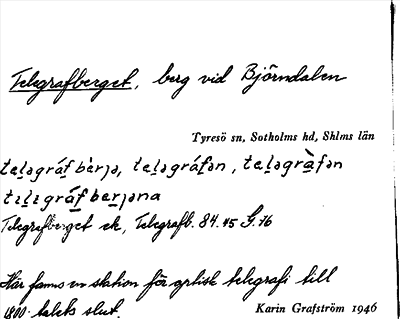 Telegrafberget, berg vid Björndalen
Tyresö sn, Sotholms hd, Shlms län
telegráf bèrjə, telegráfən, telegràfən
telegráfberjəna
Telegrafberget ek, Telegrafb. 84.45 G.76
Här fanns en station för optisk telegrafi till
1800-talets slut.
Karin Grafström 1946